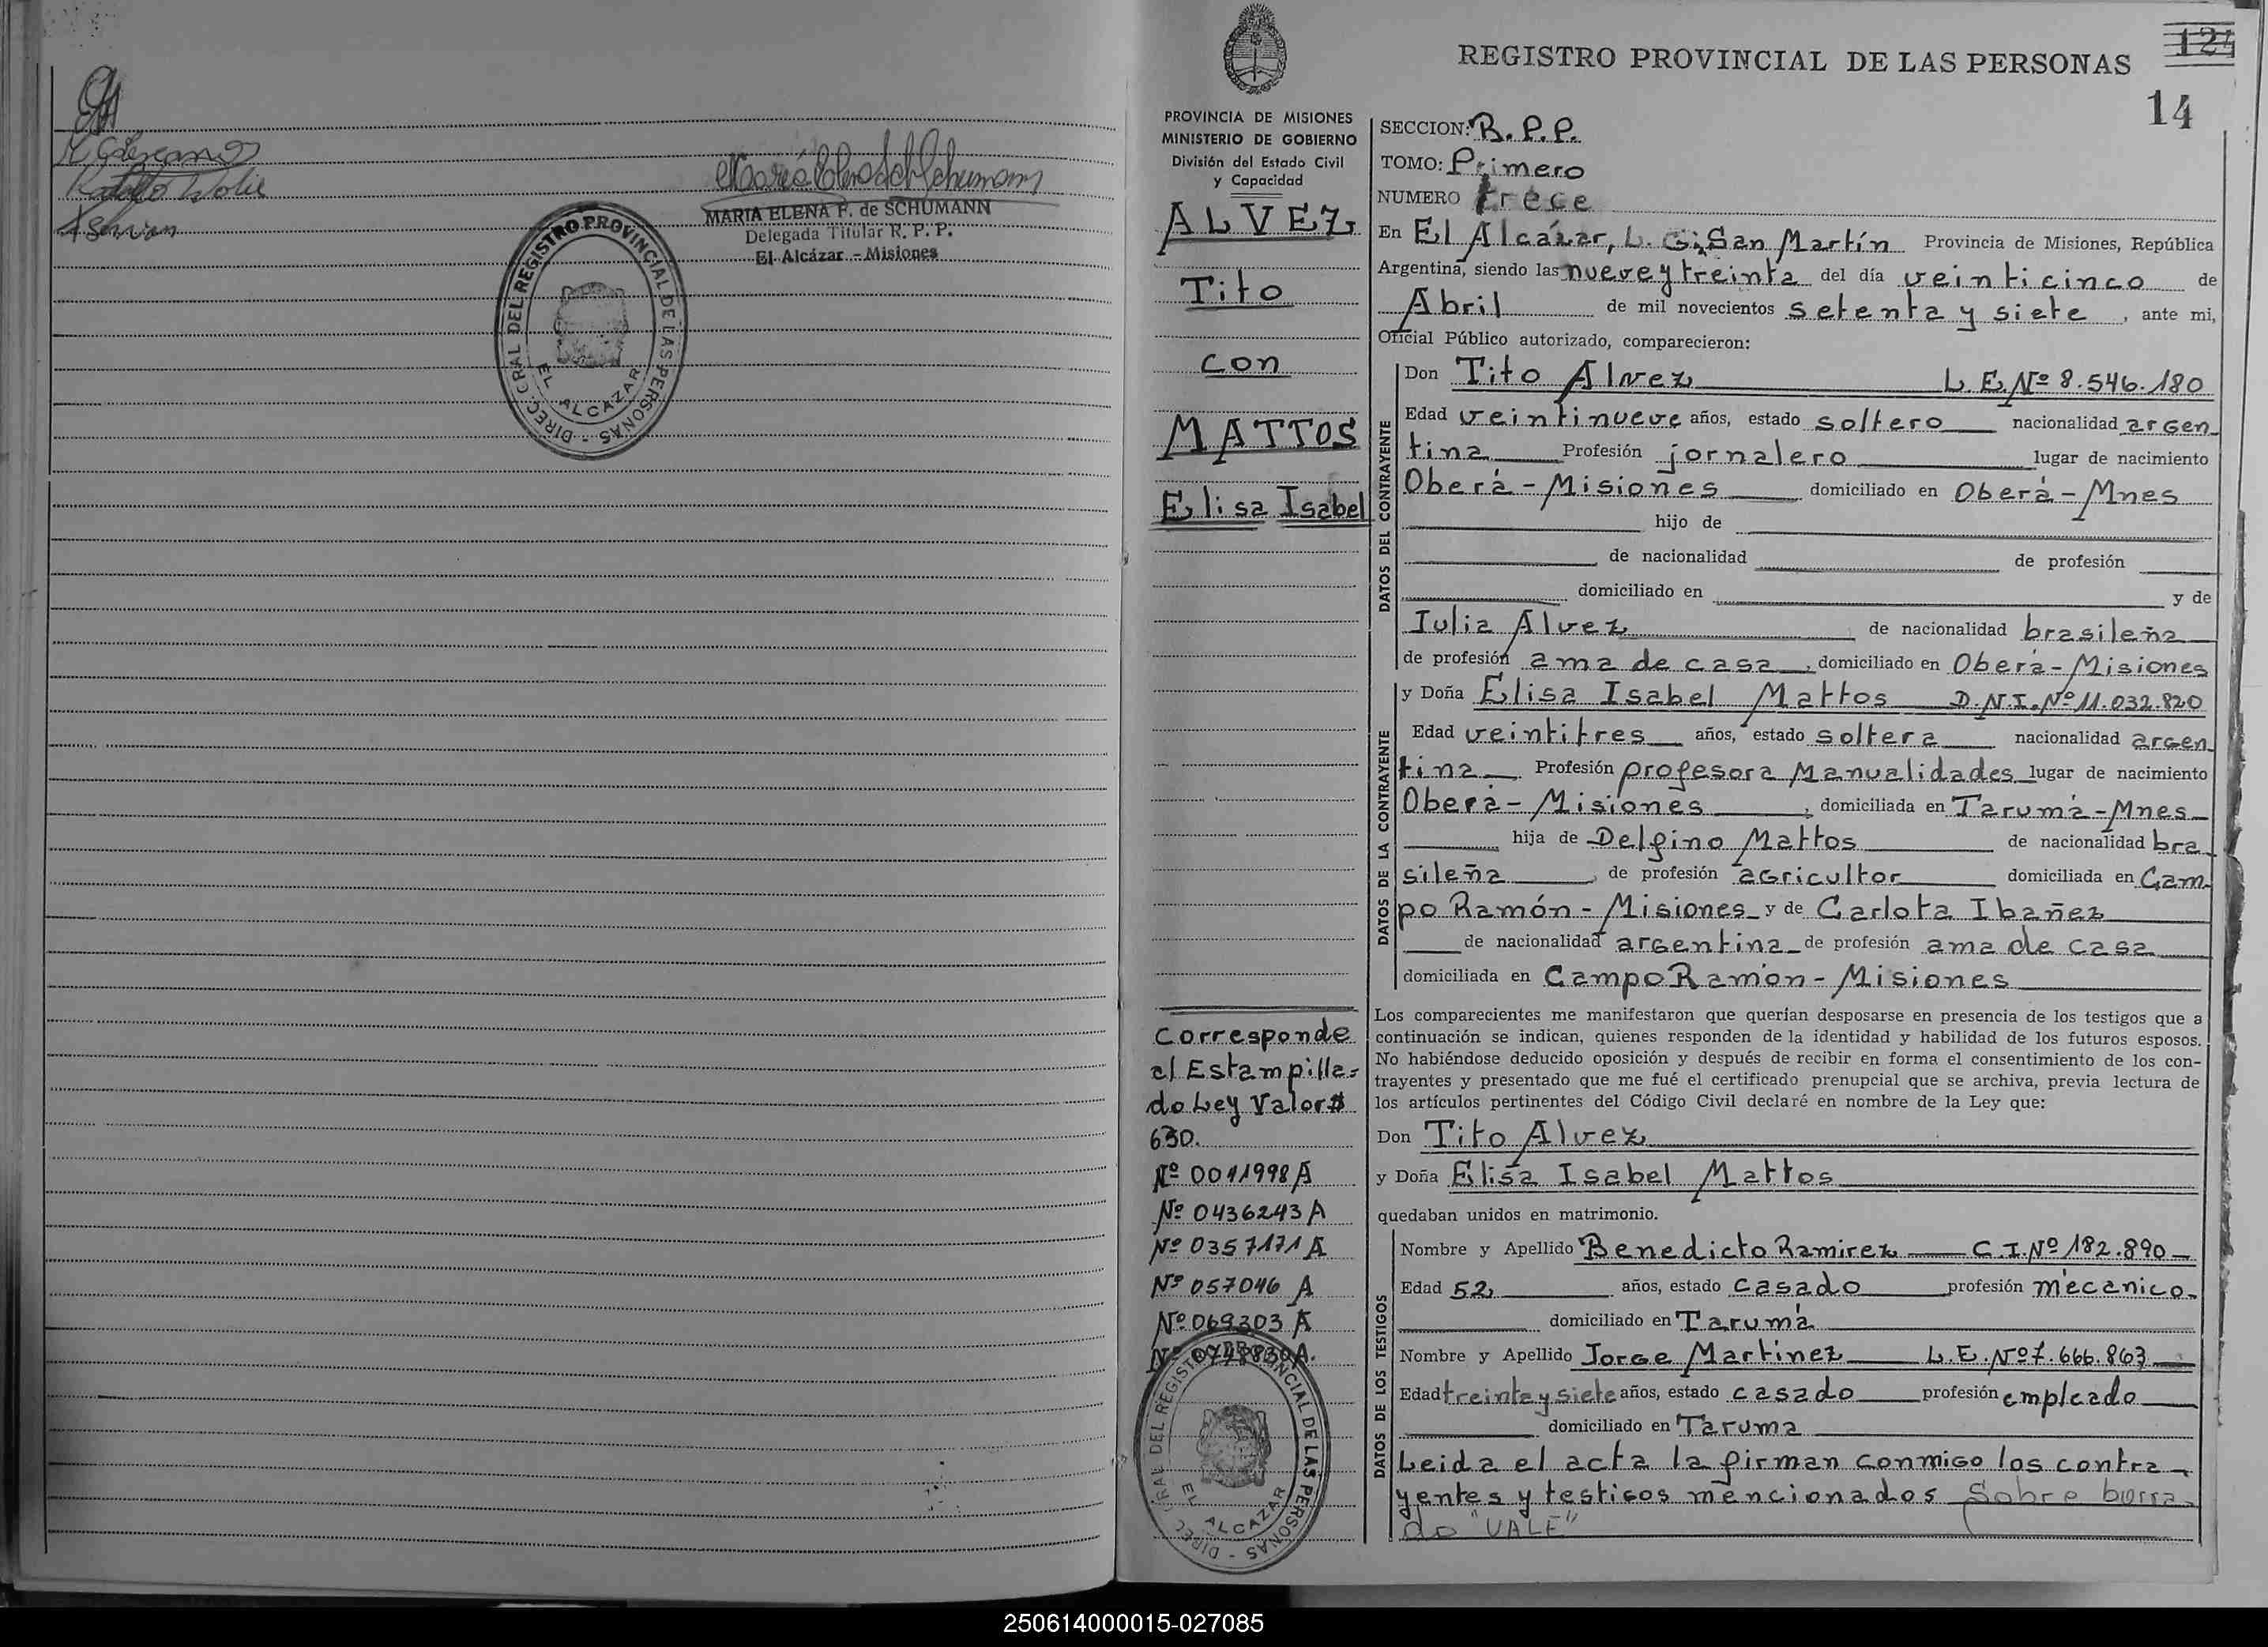 MARIA ELENA F. de SCHUMANN
Delegada Titular R. P. P.
El Alcázar - Misiones
DIREC. GRAL DEL REGISTRO PROVINCIAL DE LAS PERSONAS -
EL ALCAZAR
REGISTRO PROVINCIAL DE LAS PERSONAS
14
PROVINCIA DE MISIONES
MINISTERIO DE GOBIERNO
División del Estado Civil
y Capacidad
ALVEZ
Tito
con
MATTOS
Elisa Isabel
Corresponde
al Estampilla=
do Ley Valor $
630.
Nº 0011998 A
Nº 0436243 A
Nº 0357171 A
Nº 057046 A
Nº 069303 A
DIREC. GRAL DEL REGISTRO PROVINCIAL DE LAS PERSONAS -
EL ALCAZAR
SECCION: R. P. P.
TOMO: Primero
NUMERO trece
En El Alcázar, L. G. San Martín Provincia de Misiones, República
Argentina, siendo las nueve y treinta del día veinticinco de
Abril de mil novecientos setenta y siete, ante mi,
Oficial Público autorizado, comparecieron:
DATOS DEL CONTRAYENTE
Don Tito Alvez L. E. Nº 8.546.180
Edad veintinueve años, estado soltero nacionalidad argen
tina Profesión jornalero lugar de nacimiento
Oberá - Misiones domiciliado en Oberá - Mnes
hijo de
de nacionalidad de profesión
domiciliado en y de
Iulia Alvez de nacionalidad brasileña
de profesión ama de casa, domiciliado en Oberá - Misiones
DATOS DE LA CONTRAYENTE
y Doña Elisa Isabel Mattos D. N. I. Nº 11.032.820
Edad veintitres años, estado soltera nacionalidad argen
tina Profesión profesora Manualidades lugar de nacimiento
Oberá - Misiones, domiciliada en Tarumá - Mnes
hija de Delfino Mattos de nacionalidad bra
sileña, de profesión agricultor domiciliada en Cam
po Ramón - Misiones y de Carlota Ibañez
de nacionalidad argentina de profesión ama de casa
domiciliada en Campo Ramón - Misiones
Los comparecientes me manifestaron que querían desposarse en presencia de los testigos que a
continuación se indican, quienes responden de la identidad y habilidad de los futuros esposos.
No habiéndose deducido oposición y después de recibir en forma el consentimiento de los con-
trayentes y presentado que me fué el certificado prenupcial que se archiva, previa lectura de
los artículos pertinentes del Código Civil declaré en nombre de la Ley que:
Don Tito Alvez
y Doña Elisa Isabel Mattos
quedaban unidos en matrimonio.
DATOS DE LOS TESTIGOS
Nombre y Apellido Benedicto Ramirez C. I. Nº 182.890
Edad 52 años, estado casado profesión mécanico
domiciliado en Tarumá
Nombre y Apellido Jorge Martinez L. E. Nº 7.666.863
Edad treinta y siete años, estado casado profesión empleado
domiciliado en Taruma
Leida el acta la firman conmigo los contra
yentes y testigos mencionados Sobre borra
do "VALE"
250614000015-027085